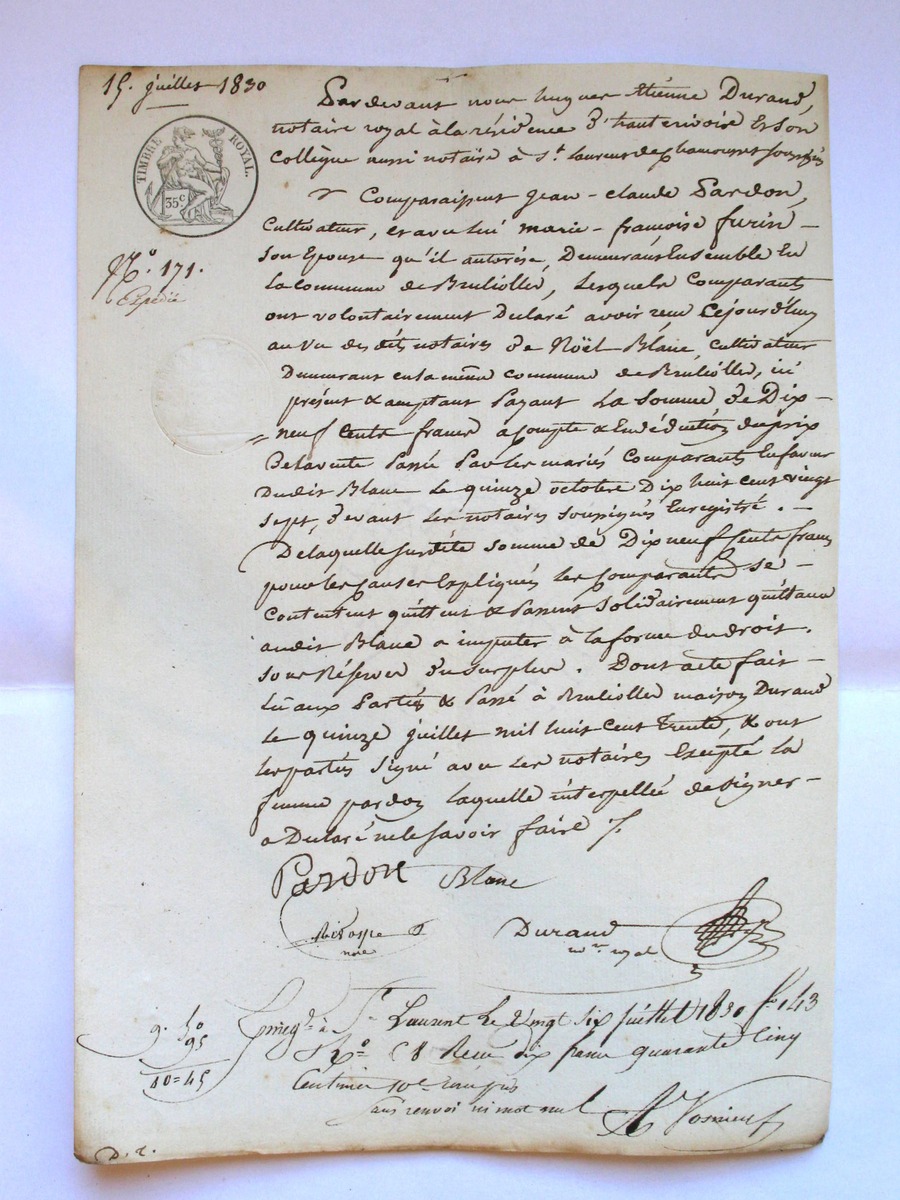 15. juillet 1830
TIMBRE ROYAL.
35c
No. 171.
Expédié
Pardevant nous hugues étienne Durand,
notaire royal à la résidence d'hauterivoire et son
Collègue aussi notaire à St. laurent de chamousset soussignés
Comparaissent jean-claude Pardon,
Cultivateur, et avec lui marie-françoise furin
son Epouse qu'il autorise, Demeurans Ensemble En
la Commune de Bruliolles, lesquels Comparants
ont volontairement Déclaré avoir reçu Cejourd'huy
au vu des dits notaires de Noël Blanc, cultivateur
Demeurant en la même commune de Bruliolles, ici
présent & acceptant Payant la Somme de Dix-
neuf Cents francs àcompte & En déduction du prix
De la vente Passée Par les mariés Comparants En faveur
Dudit Blanc le quinze octobre Dix huit cent vingt
sept, devant les notaires soussignés Enregistré. —
De laquelle susdite somme de Dix neuf Cents francs
pour les causes Expliquées les Comparants se
Contentent quittent & Passent Solidairement quittance
audit Blanc a imputer à la forme du droit.
sous Réserves du surplus. Dont acte fait
Lu aux Parties & Passé à Bruliolles maison Durand
le quinze juillet mil huit Cent Trente, & ont
les parties Signé avec les notaires Excepté la
femme pardon laquelle interpellée de Signer
a Déclaré ne le savoir faire /.
Pardon Blanc
nore
Durand
nre royal
Enregé à St Laurent le vingt six juillet 1830 fo 143
Ro C 8 Reçu dix francs quarante Cinq
Centimes 10e compris
sans renvoi ni mot nul
9. 50
95
10=45
D. r.